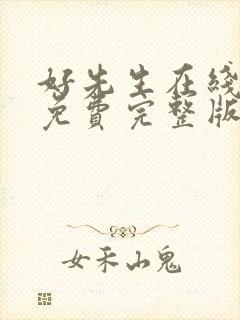 好先生在线
免费完整版
女禾山鬼